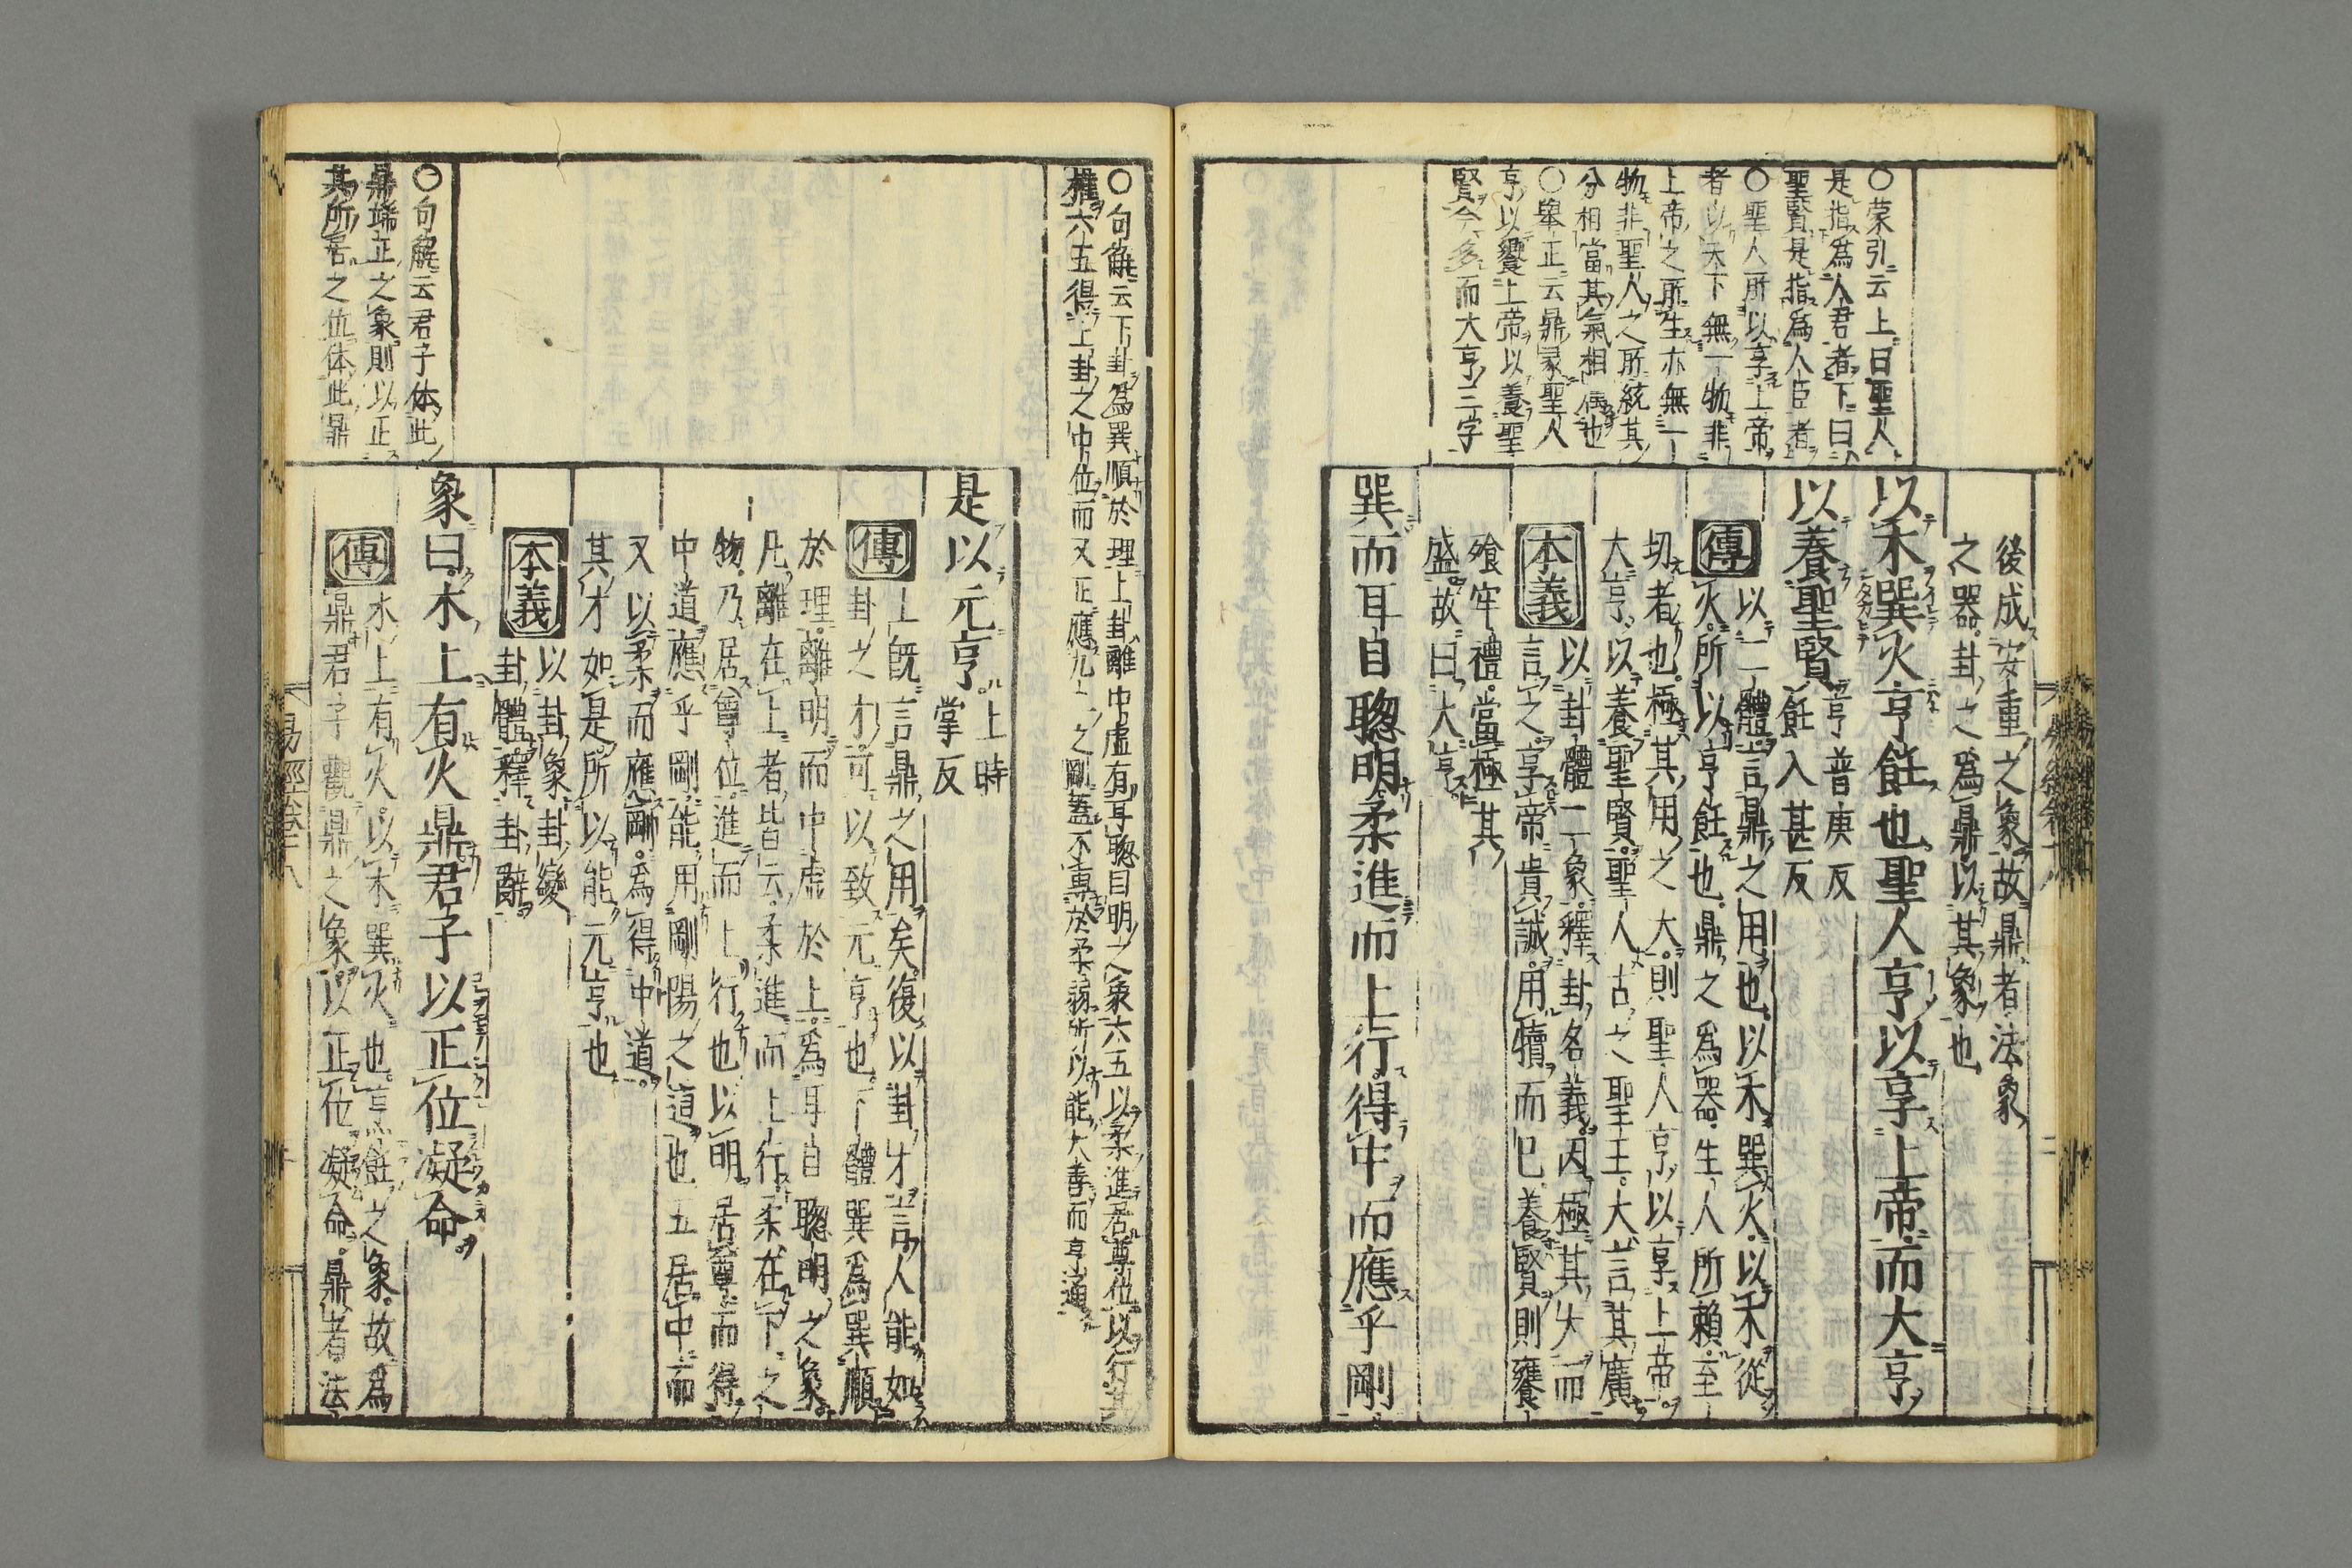 〇蒙引云上曰聖人
是指爲人君者下曰
聖賢是指爲人臣者
〇聖人所以享上帝
者以天下無一物非
上帝之所生亦無一
物非聖人之所統其
分相當其氣相偶也
〇舉正云鼎彖聖人
亨以饗上帝以養聖
賢今多而大亨三字
後成安重之象故鼎者法象
之器卦之爲鼎以其象也
以木巽火亨飪也聖人亨以享上帝而大亨
以養聖賢
亨普庚反
飪入甚反
傳
以二體言鼎之用也以木巽火以木從
火所以亨飪也鼎之爲器生人所賴至
切者也極其用之大則聖人亨以享上帝
大亨以養聖賢聖人古之聖王大言其廣
本義
以卦體二象釋卦名義因極其大而
言之享帝貴誠用犢而已養賢則饔
飱牢禮當極其
盛故曰大亨
巽而耳目聰明柔進而上行得中而應乎剛
〇句解云下卦爲巽順於理上卦離中虛有耳聰目明之象六五以柔進居尊位以行其
權六五得上卦之中位而又正應九二之剛蓋不專於柔弱所以能大善而亨通
是以元亨
上時
掌反
傳
上既言鼎之用矣復以卦才言人能如
卦之才可以致元亨也下體巽爲巽順
於理離明而中虛於上爲耳目聰明之象
凡離在上者皆云柔進而上行柔在下之
物乃居尊位進而上行也以明居尊而得
中道應乎剛能用剛陽之道也五居中而
又以柔而應剛爲得中道
其才如是所以能元亨也
本義
以卦象卦變
卦體釋卦辭
〇句解云君子体此
鼎端正之象則以正
其所居之位体此鼎
象曰木上有火鼎君子以正位凝命
傳
木上有火以木巽火也烹飪之象故爲
鼎君子觀鼎之象以正位凝命鼎者法
易經卷十八